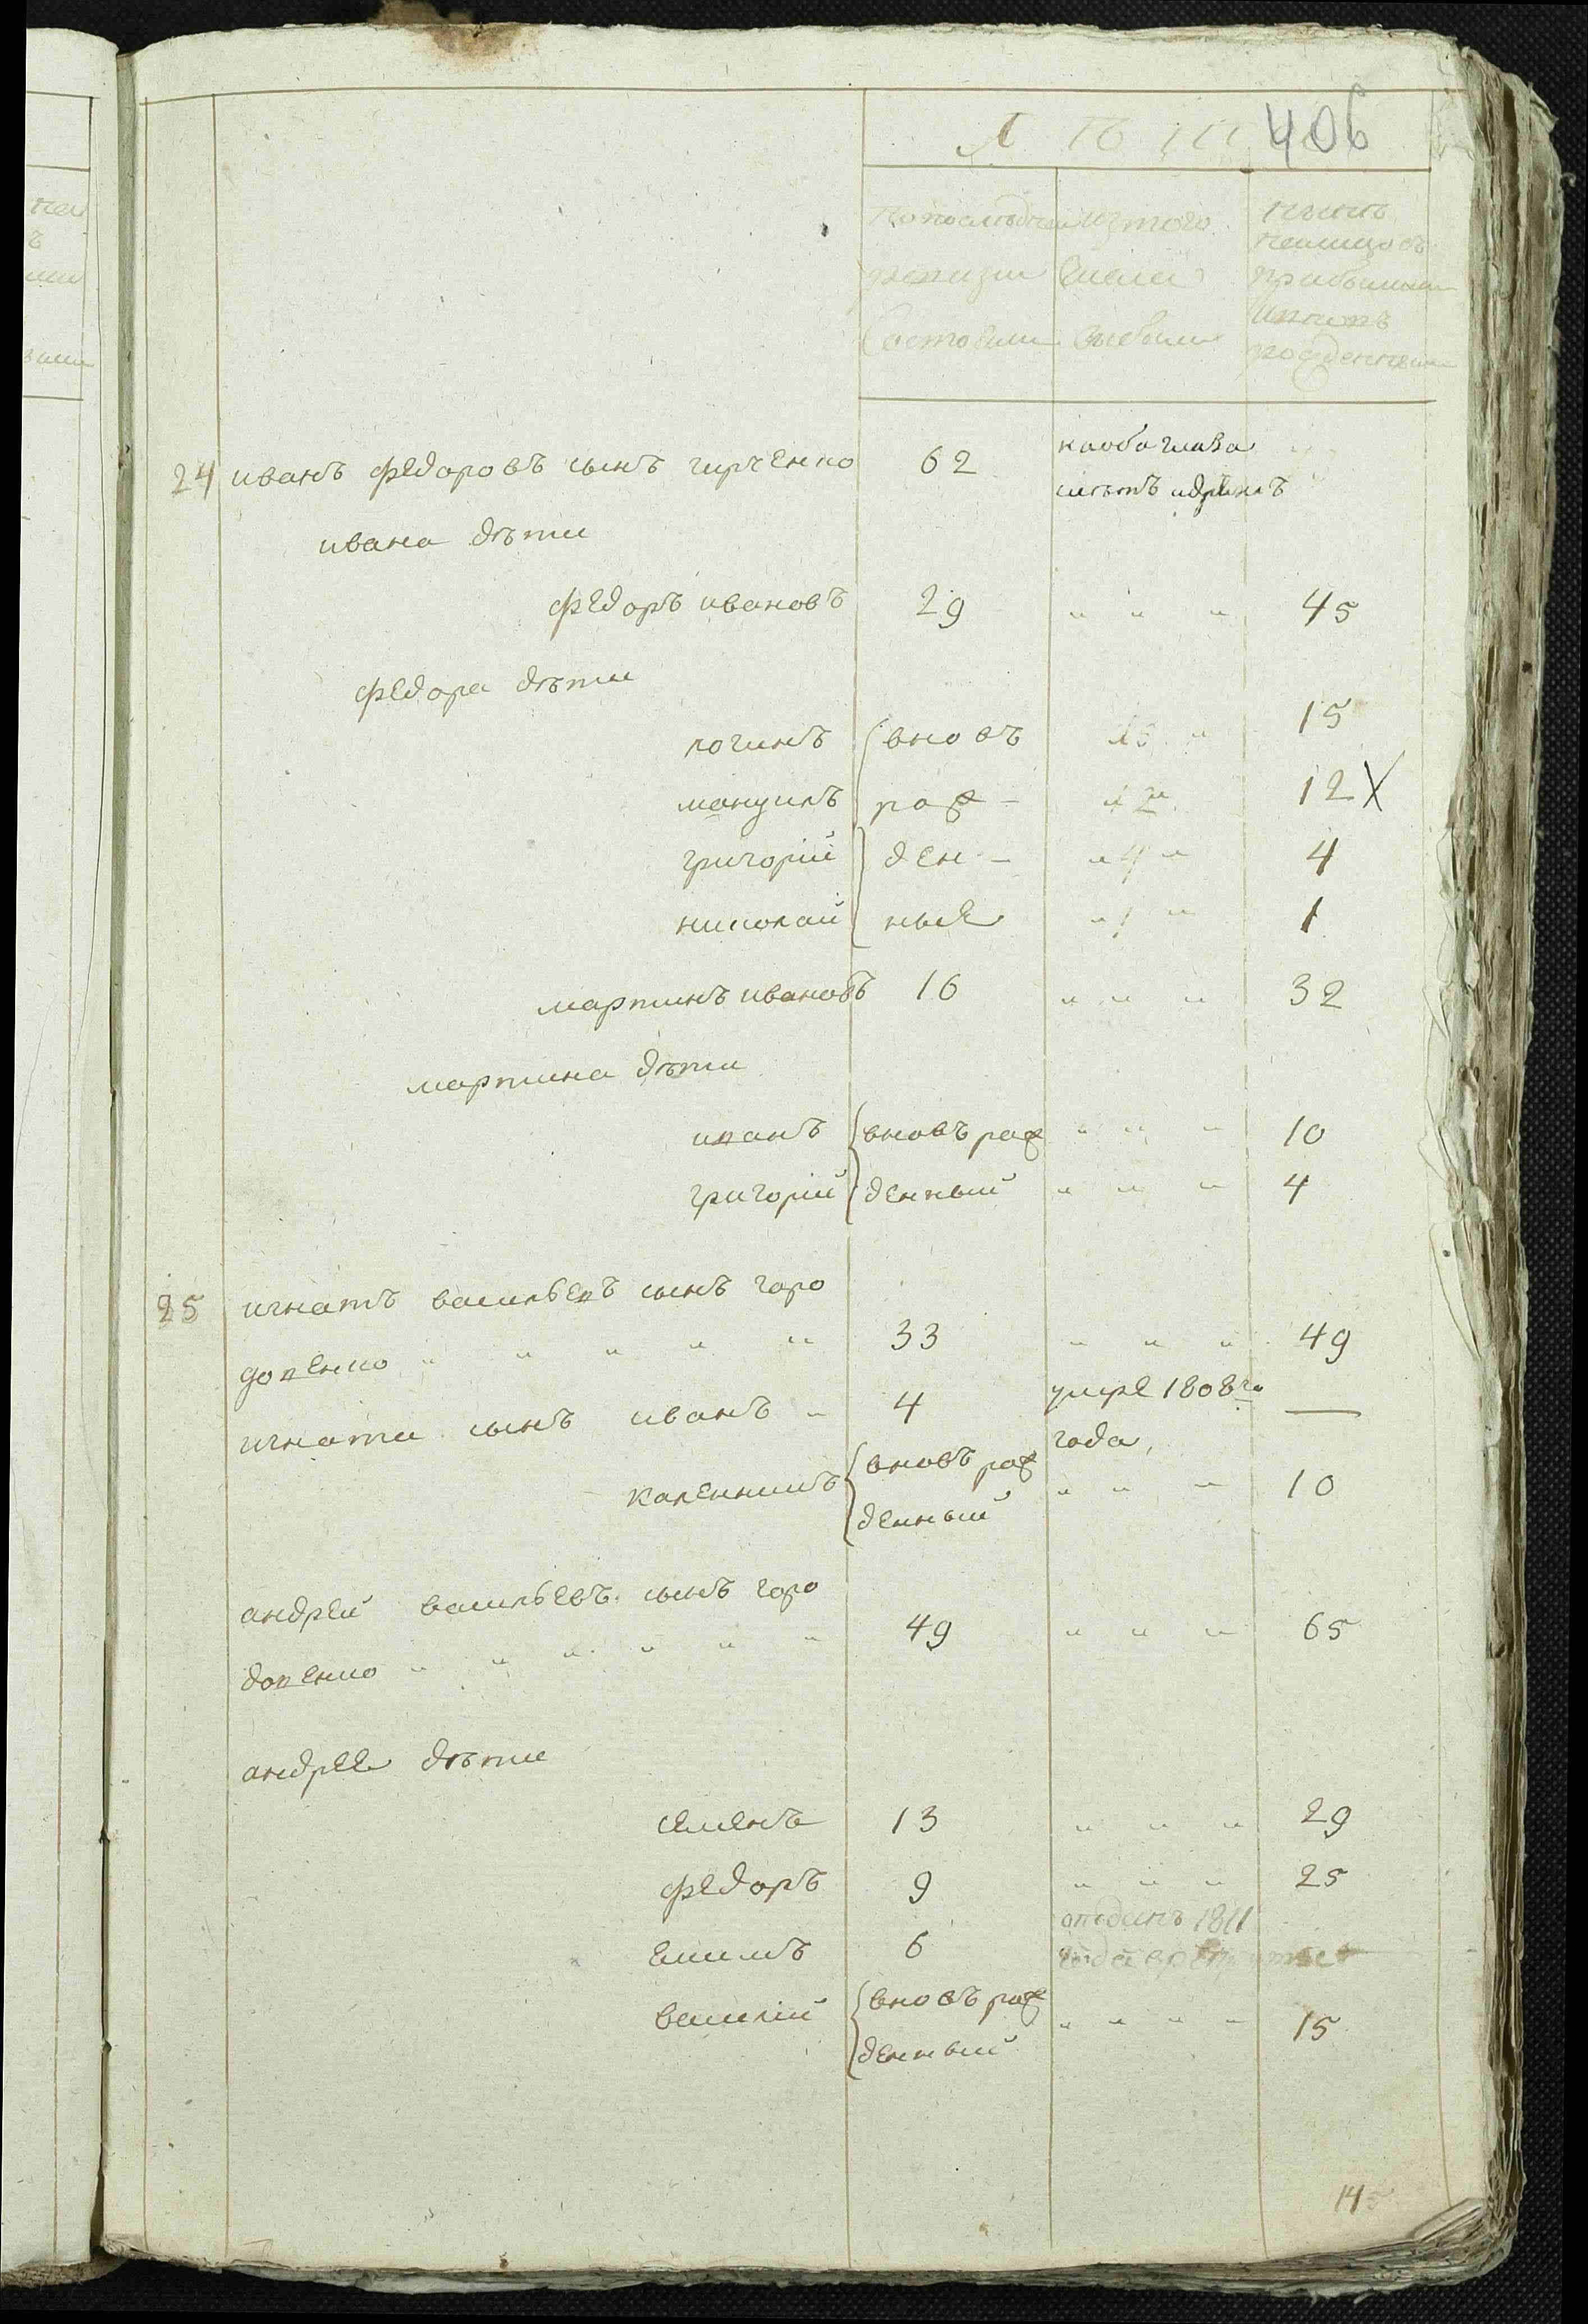 406
Лѣта
по последней
ревизии
состояли
из того
числа
выбыли
ныне
налицо съ
прибылыми
и вновь
рожденными
24 иванъ федоровъ сынъ гирченко 62
на оба глаза
слѣпъ
ивана дѣти
федоръ ивановъ 29 " " " 45
федора дѣти
логинъ вновъ 15 " 15
мануилъ рож- 12 " 12 X
григорій ден- " 4 " 4
николай ные " 1 " 1
мартинъ ивановъ 16 " " " 32
мартина дѣти
иванъ вновъ рож " " " 10
григорій денный " " " 4
25 игнатъ васильевъ сынъ горо
доленко " " " " " 33 " " " 49
игнати сынъ иванъ - 4 умре 1808го —
года,
каленникъ вновъ рож " " " 10
денный
андрей васильевъ сынъ горо
доленко " " " " " " 49 " " " 65
андрея дѣти
семенъ 13 " " " 29
федоръ 9 " " " 25
отданъ 1811
екимъ 6 года в рекруты
василій вновъ рож " " " " 15
денный
145